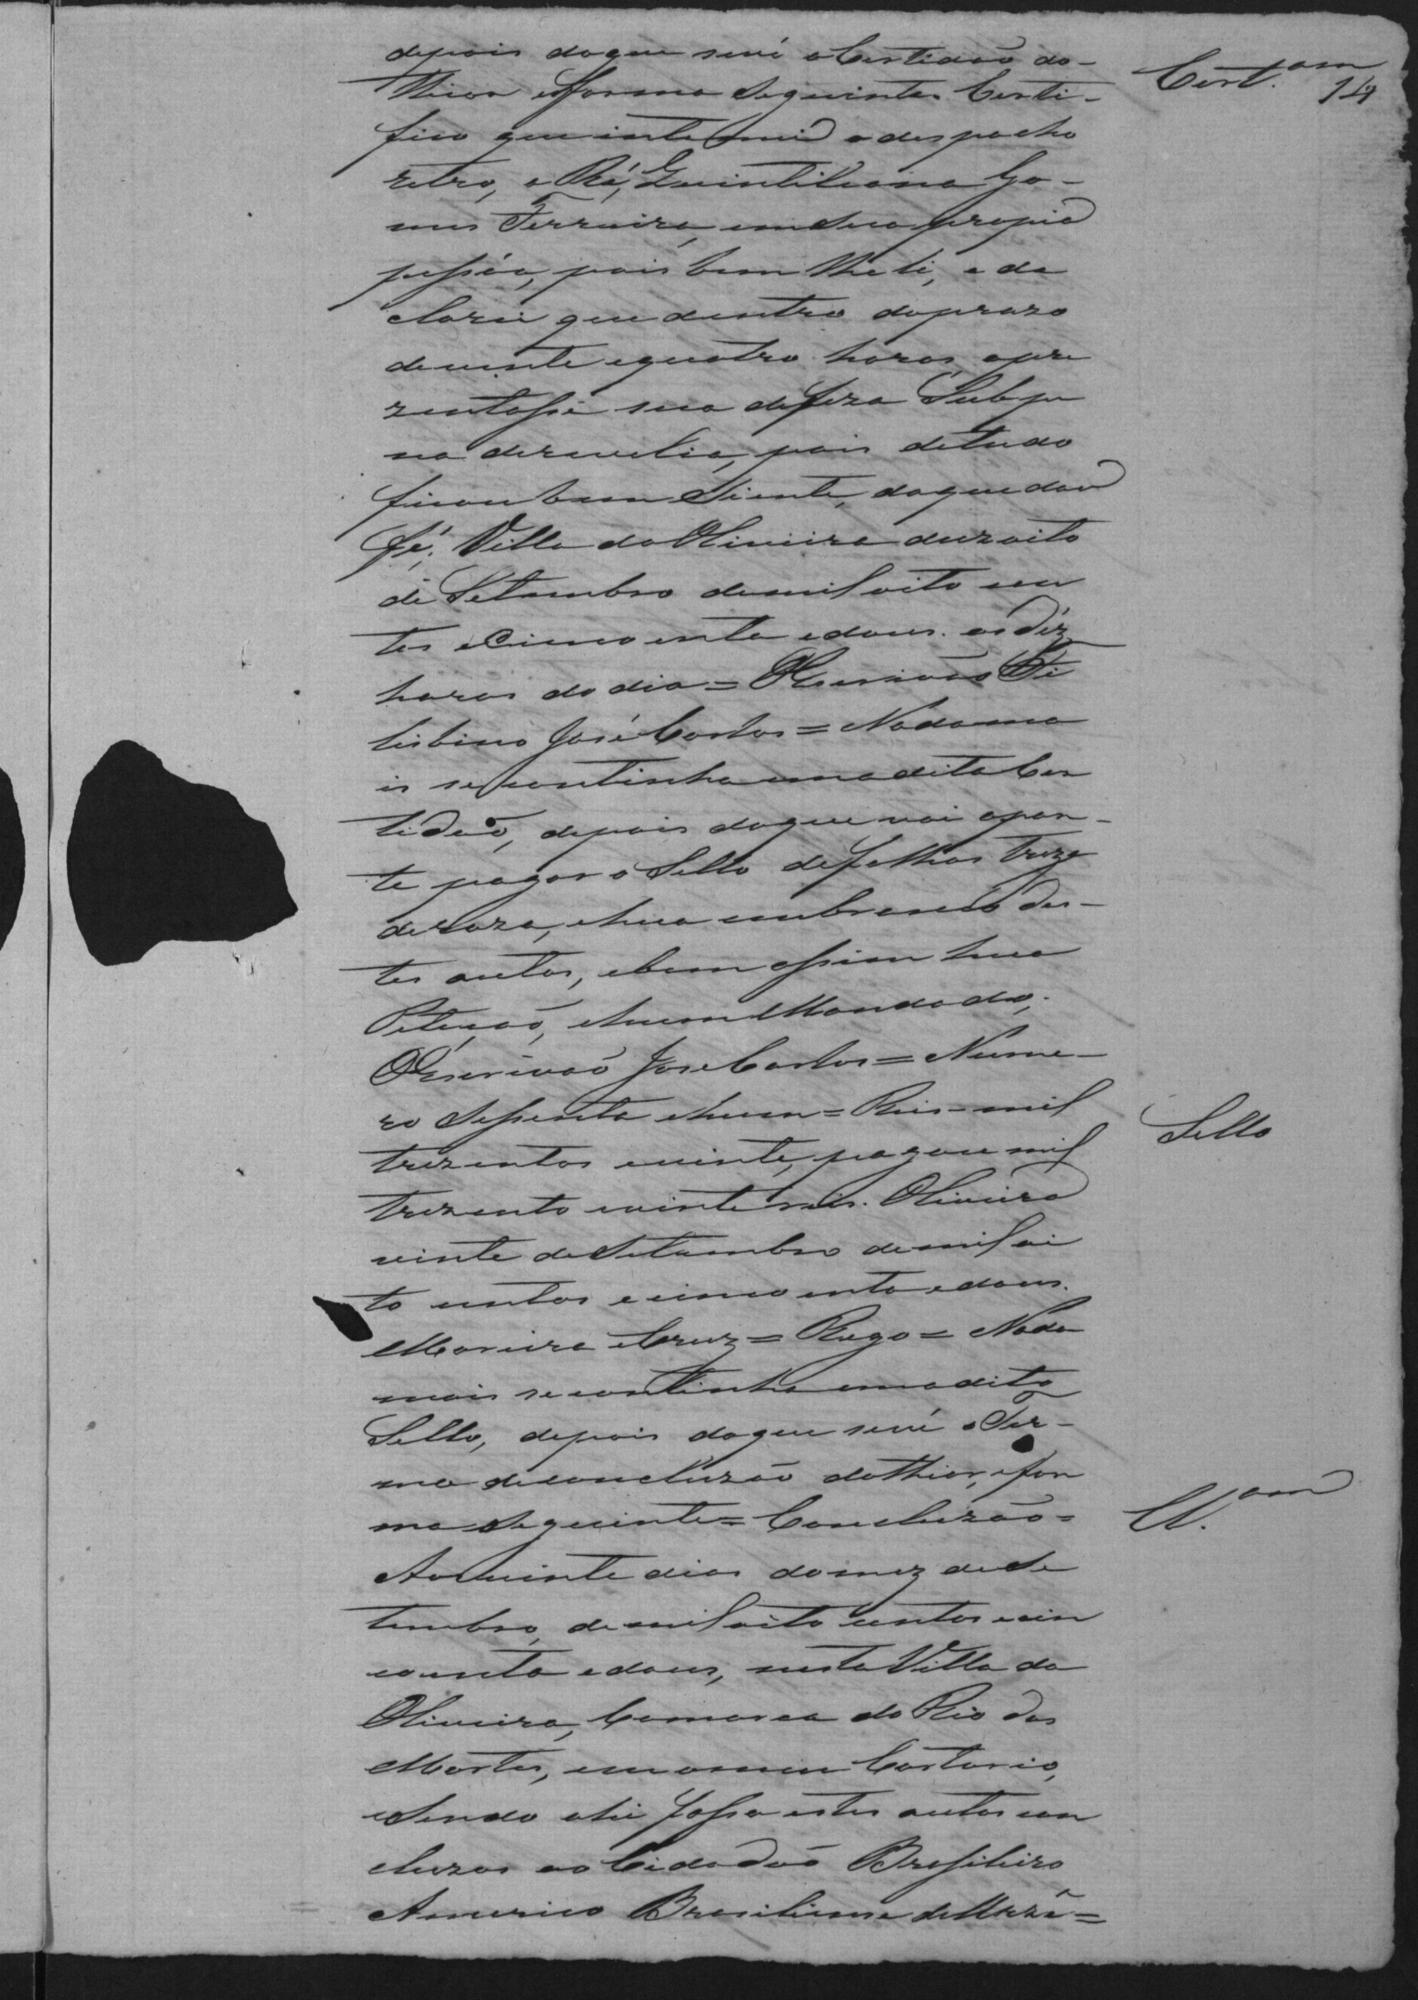 depois do que se vé a Certidaõ do
Cert.am
14
thior e forma Seguinte. Certi-
fico que intemei o despacho
retro, a Ré, Quintiliana Go-
mes Ferreira, em Sua propia
pessôa, pois bem lhe li, e de
clarei que dentro do prazo
de vinte e quatro horas, apre
zentasse sua defeza Sub pe
na de revelia, pois de tudo
ficou bem Siente, do que dou
fé. Villa da Oliveira dezoito
de Setembro de mil oito cen
tos e Cincoenta e dous. as déz
horas do dia = O Escrivaõ Fe
lisbino José Carlos = Nada ma
is se continha em a dita Cer
tidaõ, depois do que vai apar-
te pagar o Sello de folhas treze
de raza, e hua em branco des-
tes autos, e bem assim hua
Petiçaõ, e hum Mandado;
O Escrivaõ José Carlos = Nume-
ro Sessenta e hum = Reis - mil
Sello
trezentos e vinte, pagou mil
trezento e vinte reis. Oliveira
vinte de Setembro de mil oi
to centos e cincoenta e dous.
Moreira Cruz = Rego = Nada
mais se continha em o dito
Sello, depois do que se vé o Ter-
mo de concluzão do thior, e for
ma Seguinte = Concluzão =
Cl.am
Aos vinte dias do mez de Se
tembro, de mil oito centos e cin
coenta e dous, nesta Villa da
Oliveira, Comarca do Rio das
Mortes, em o meu Cartorio,
e Sendo ahi fasso estes autos con
cluzos ao Cidadaõ Brasileiro
Americo Brasiliense de Mezê=